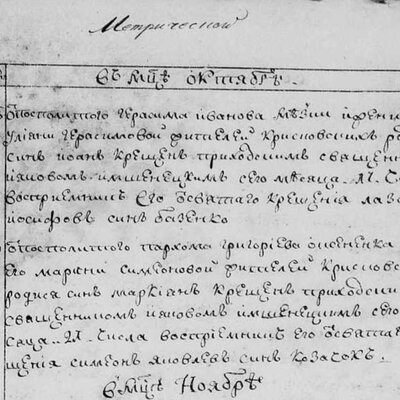 Метрической
въ мцѣ октябрѣ
посполитого герасима иванова
герасимовой жителей крисновскихъ
синъ иоанъ крещенъ приходскимъ священн
яковомъ имшенецкимъ сего месяца
восприемникъ его святаго крещения
иосифовъ синъ
посполитого пархома григоріева
его марѳии симеоновой жителей крисновс
родися синъ маркіанъ крещенъ приходски
священникомъ яковомъ имшенецкимъ сего
сяца числа воспріемникъ его святаг
щения симеонъ яковлевъ синъ козачокъ
въ мцѣ Ноябрѣ